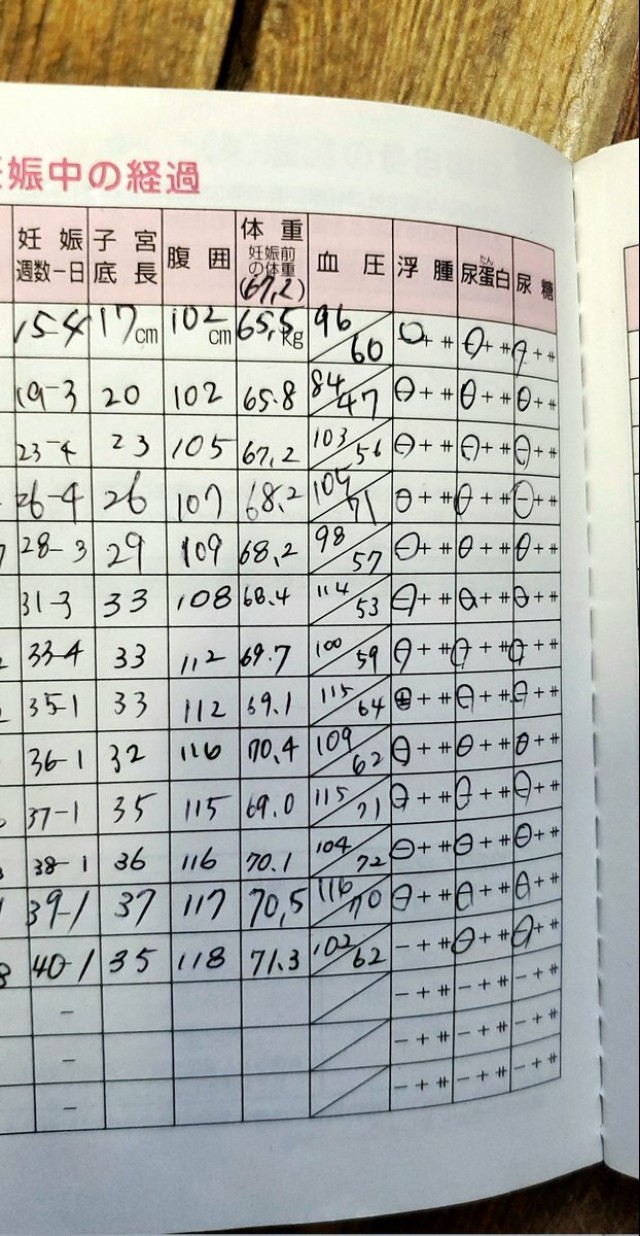 娠中の経過
妊娠週数-日 子宮底長 腹囲 体重 妊娠前の体重(67.2) 血圧 浮腫 尿蛋白(たん) 尿糖
15-4 17cm 102cm 65.5kg 96/60 - + ⧺ - + ⧺ - + ⧺
19-3 20 102 65.8 84/47 - + ⧺ - + ⧺ - + ⧺
23-4 23 105 67.2 103/56 - + ⧺ - + ⧺ - + ⧺
26-4 26 107 68.2 105/71 - + ⧺ - + ⧺ - + ⧺
28-3 29 109 68.2 98/57 - + ⧺ - + ⧺ - + ⧺
31-3 33 108 68.4 114/53 - + ⧺ - + ⧺ - + ⧺
33-4 33 112 69.7 100/59 - + ⧺ - + ⧺ - + ⧺
35-1 33 112 69.1 115/64 - + ⧺ - + ⧺ - + ⧺
36-1 32 116 70.4 109/62 - + ⧺ - + ⧺ - + ⧺
37-1 35 115 69.0 115/71 - + ⧺ - + ⧺ - + ⧺
38-1 36 116 70.1 104/72 - + ⧺ - + ⧺ - + ⧺
39-1 37 117 70.5 116/70 - + ⧺ - + ⧺ - + ⧺
40-1 35 118 71.3 102/62 - + ⧺ - + ⧺ - + ⧺
- / - + ⧺ - + ⧺ - + ⧺
- / - + ⧺ - + ⧺ - + ⧺
- / - + ⧺ - + ⧺ - + ⧺